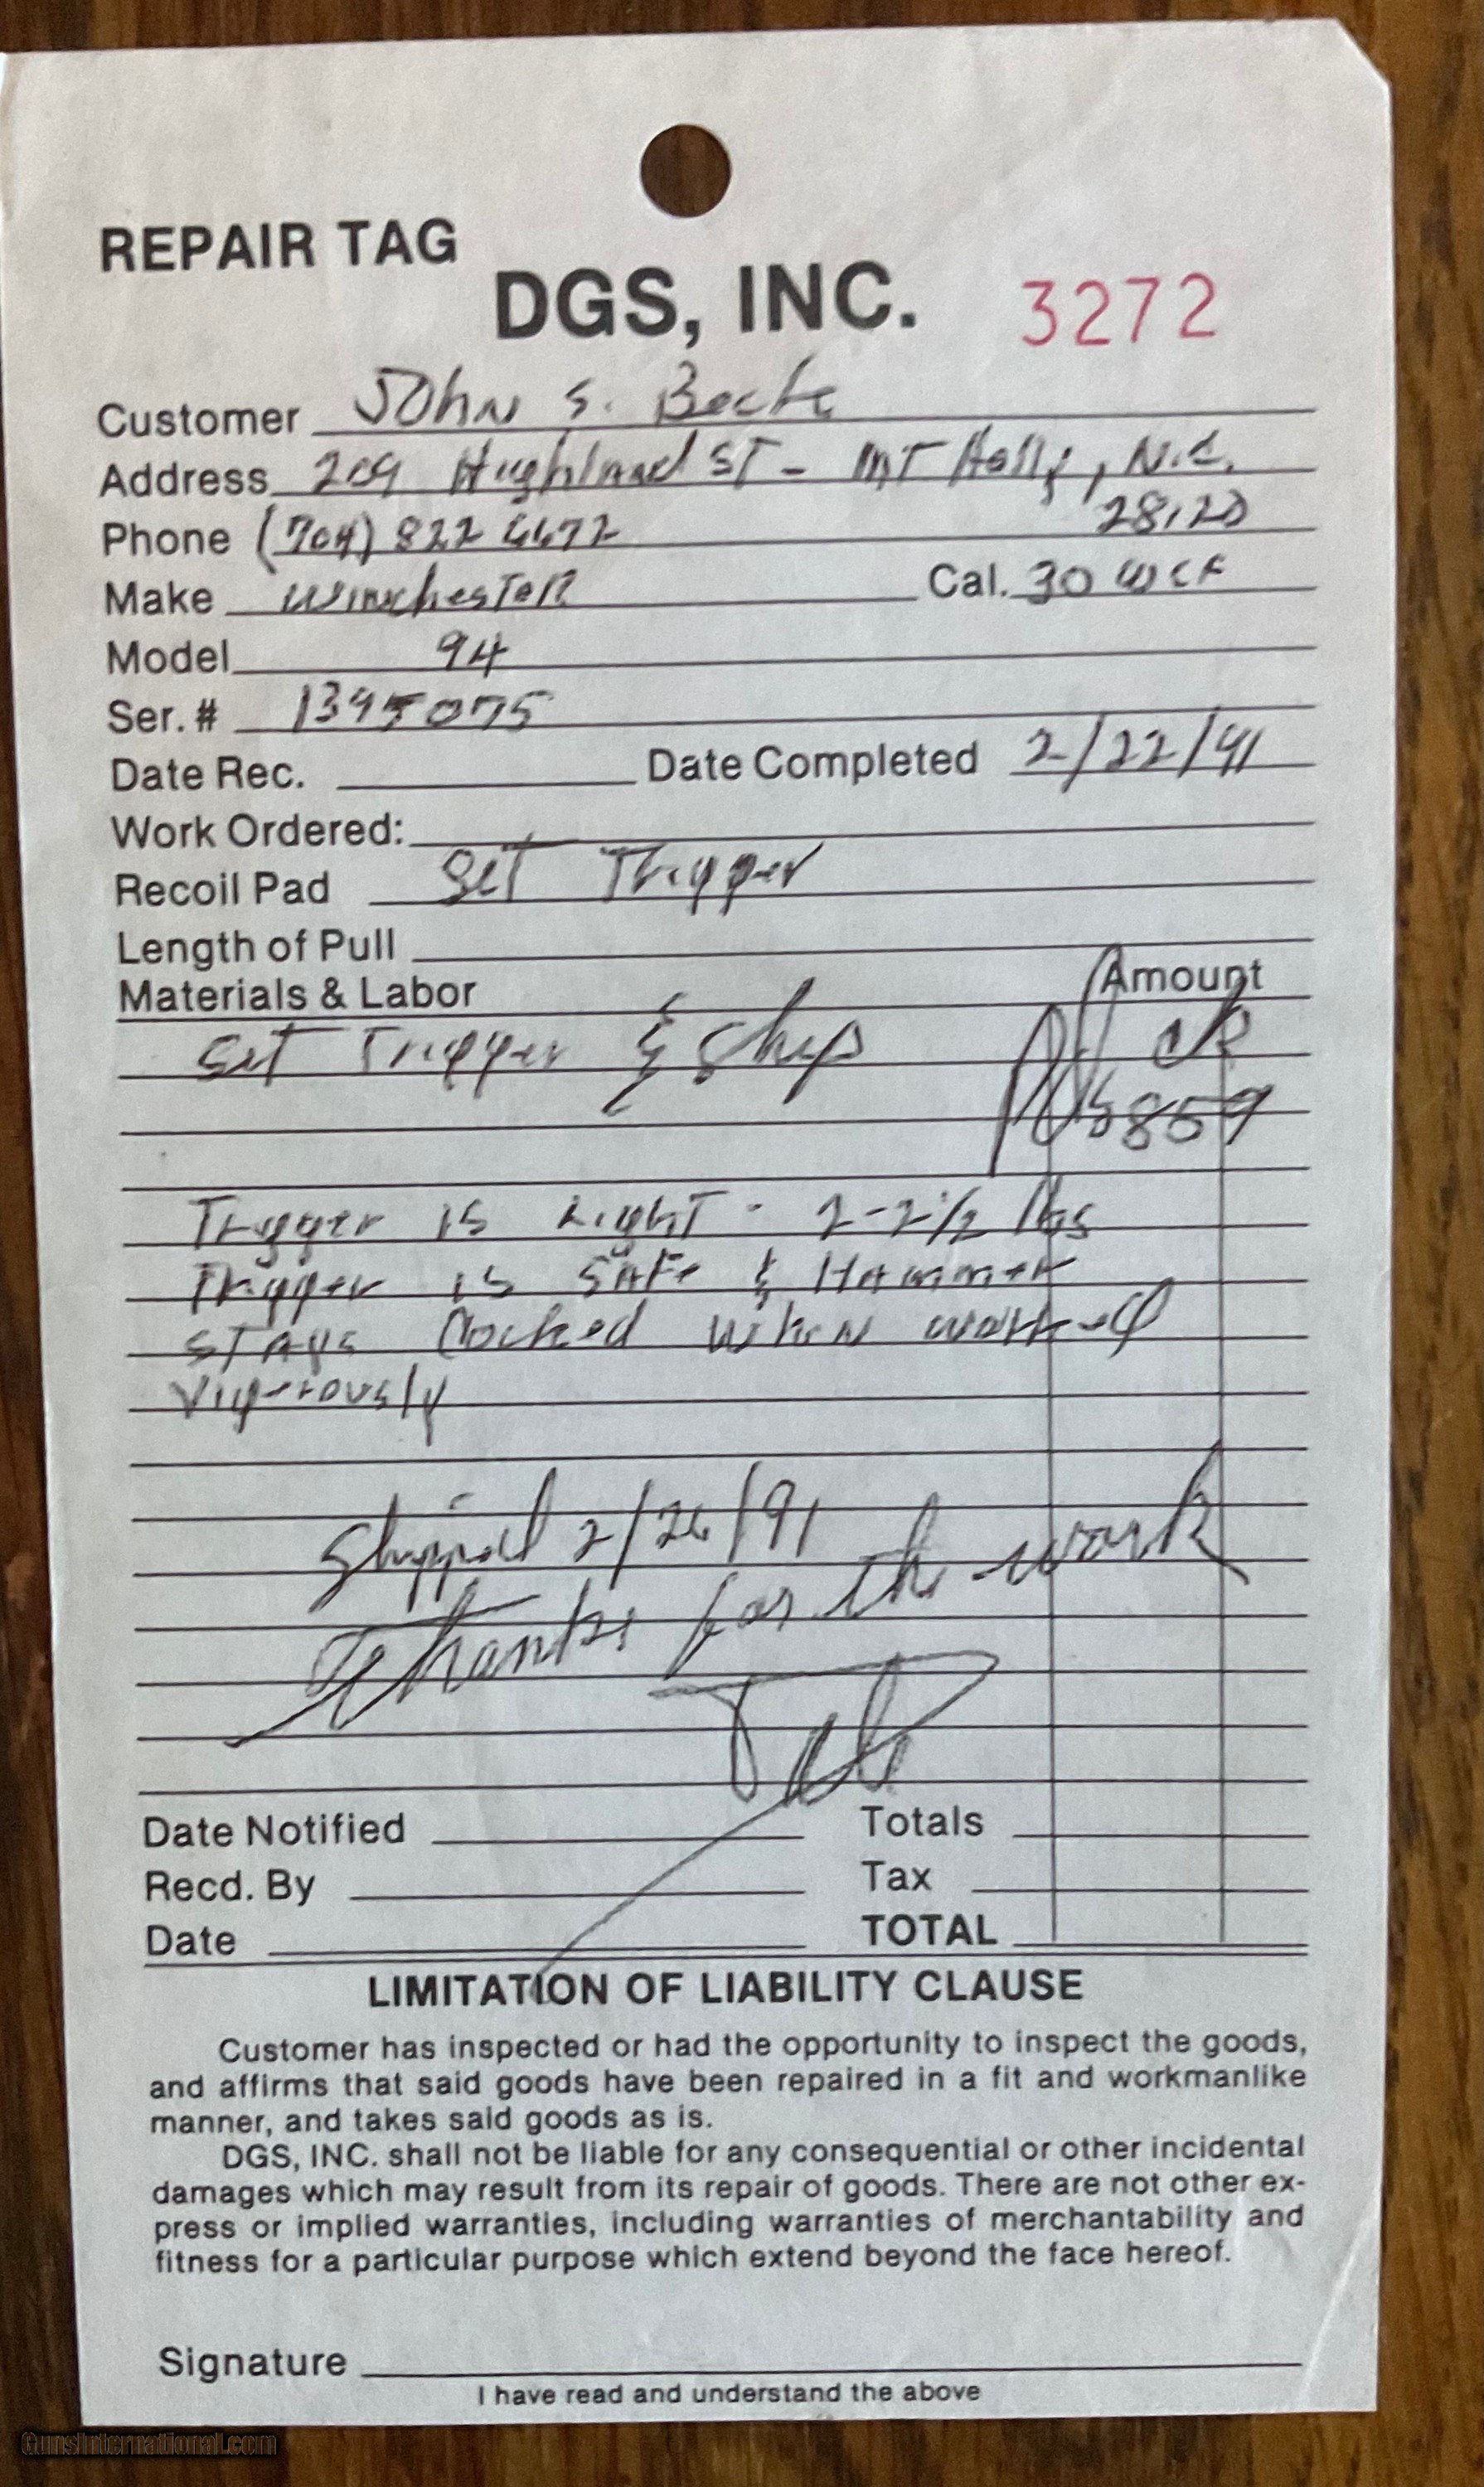 REPAIR TAG
DGS, INC. 3272
Customer John S.
Address 209 Highland ST - MT Holly, N.C.
28120
Phone (704) 822
Make Winchester Cal. 30 WCF
Model 94
Ser. # 1395075
Date Rec. Date Completed 2/22/91
Work Ordered:
Recoil Pad Set Trigger
Length of Pull
Materials & Labor Amount
Set Trigger & Ship ck
859
Trigger is Light - 2-2 1/2 lbs
Trigger is Safe & Hammer
STAys Cocked when worked
Vigerously
Shipped 2/26/91
Thanks for the work
Date Notified Totals
Recd. By Tax
Date TOTAL
LIMITATION OF LIABILITY CLAUSE
Customer has inspected or had the opportunity to inspect the goods,
and affirms that said goods have been repaired in a fit and workmanlike
manner, and takes said goods as is.
DGS, INC. shall not be liable for any consequential or other incidental
damages which may result from its repair of goods. There are not other ex-
press or implied warranties, including warranties of merchantability and
fitness for a particular purpose which extend beyond the face hereof.
Signature
I have read and understand the above
GunsInternational.com